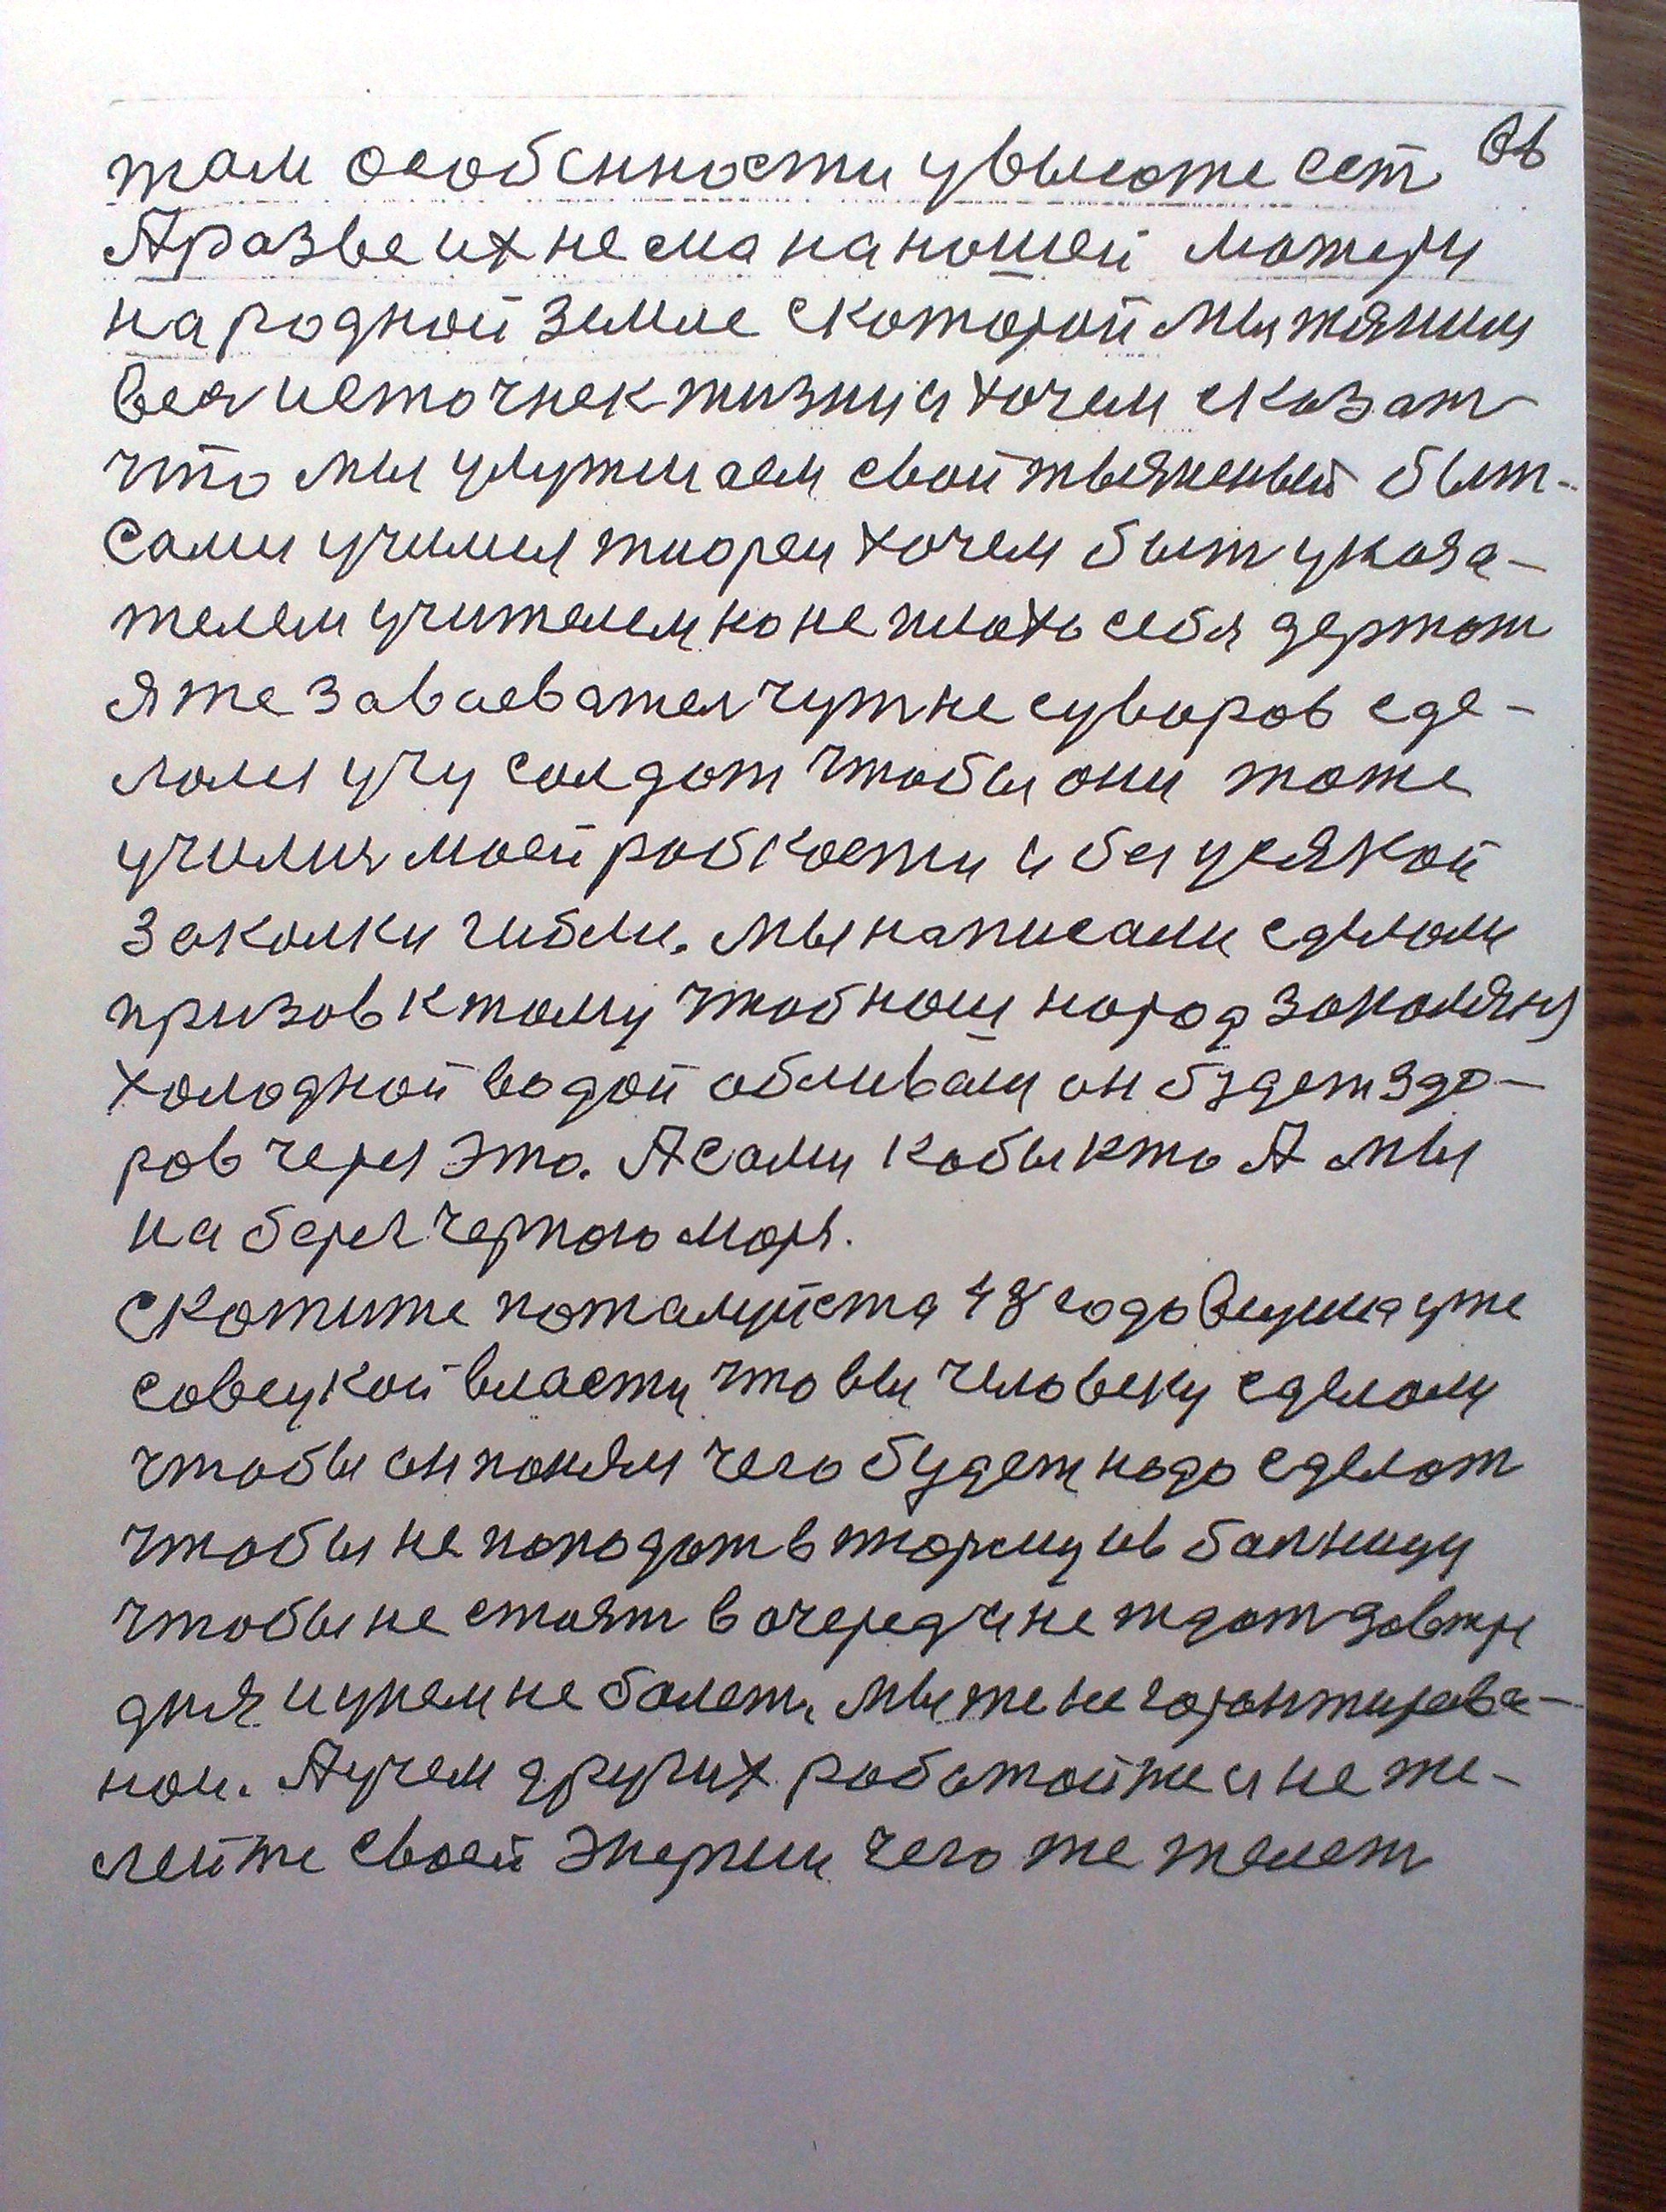 там особенности у высоте ест
А разве их не ма на ношей матери
на родной земле с которой мы тяним
вся источнек жизни и хочем сказат
что мы улужшаем свой тяженый быт
сами училися теореи хочем быт указа-
телем учителем но не плохо себя держат
я же заваевател чут не суворов сде-
лался учу солдат чтобы они тоже
училис моей робкости и без усякой
заколки гибли. мы написали сделали
призов к тому чтоб нош народ закаляли
холодной водой обливали он будет здо-
ров через это. А сами кабы кто А мы
на берег черного моря.
скажите пожалуйста 48 годов
совецкой власти что вы человеку сделали
чтобы он понял чего будет нодо сделат
чтобы не поподат в тюрму и в балницу
чтобы не стоят в очередя и не ждат завтре
дня и у нем не болет. мы же не горантирова-
нои. А учем других работойте и не жи-
лейте своей энергии чего же желет